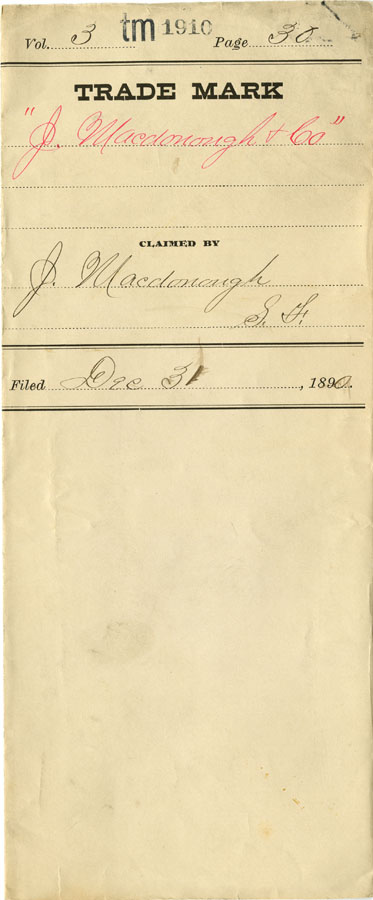 Vol. 3 tm 1910 Page 30
TRADE MARK
"J. Macdonough & Co"
CLAIMED BY
J. Macdonough
S. F.
Filed Dec 31, 1890.